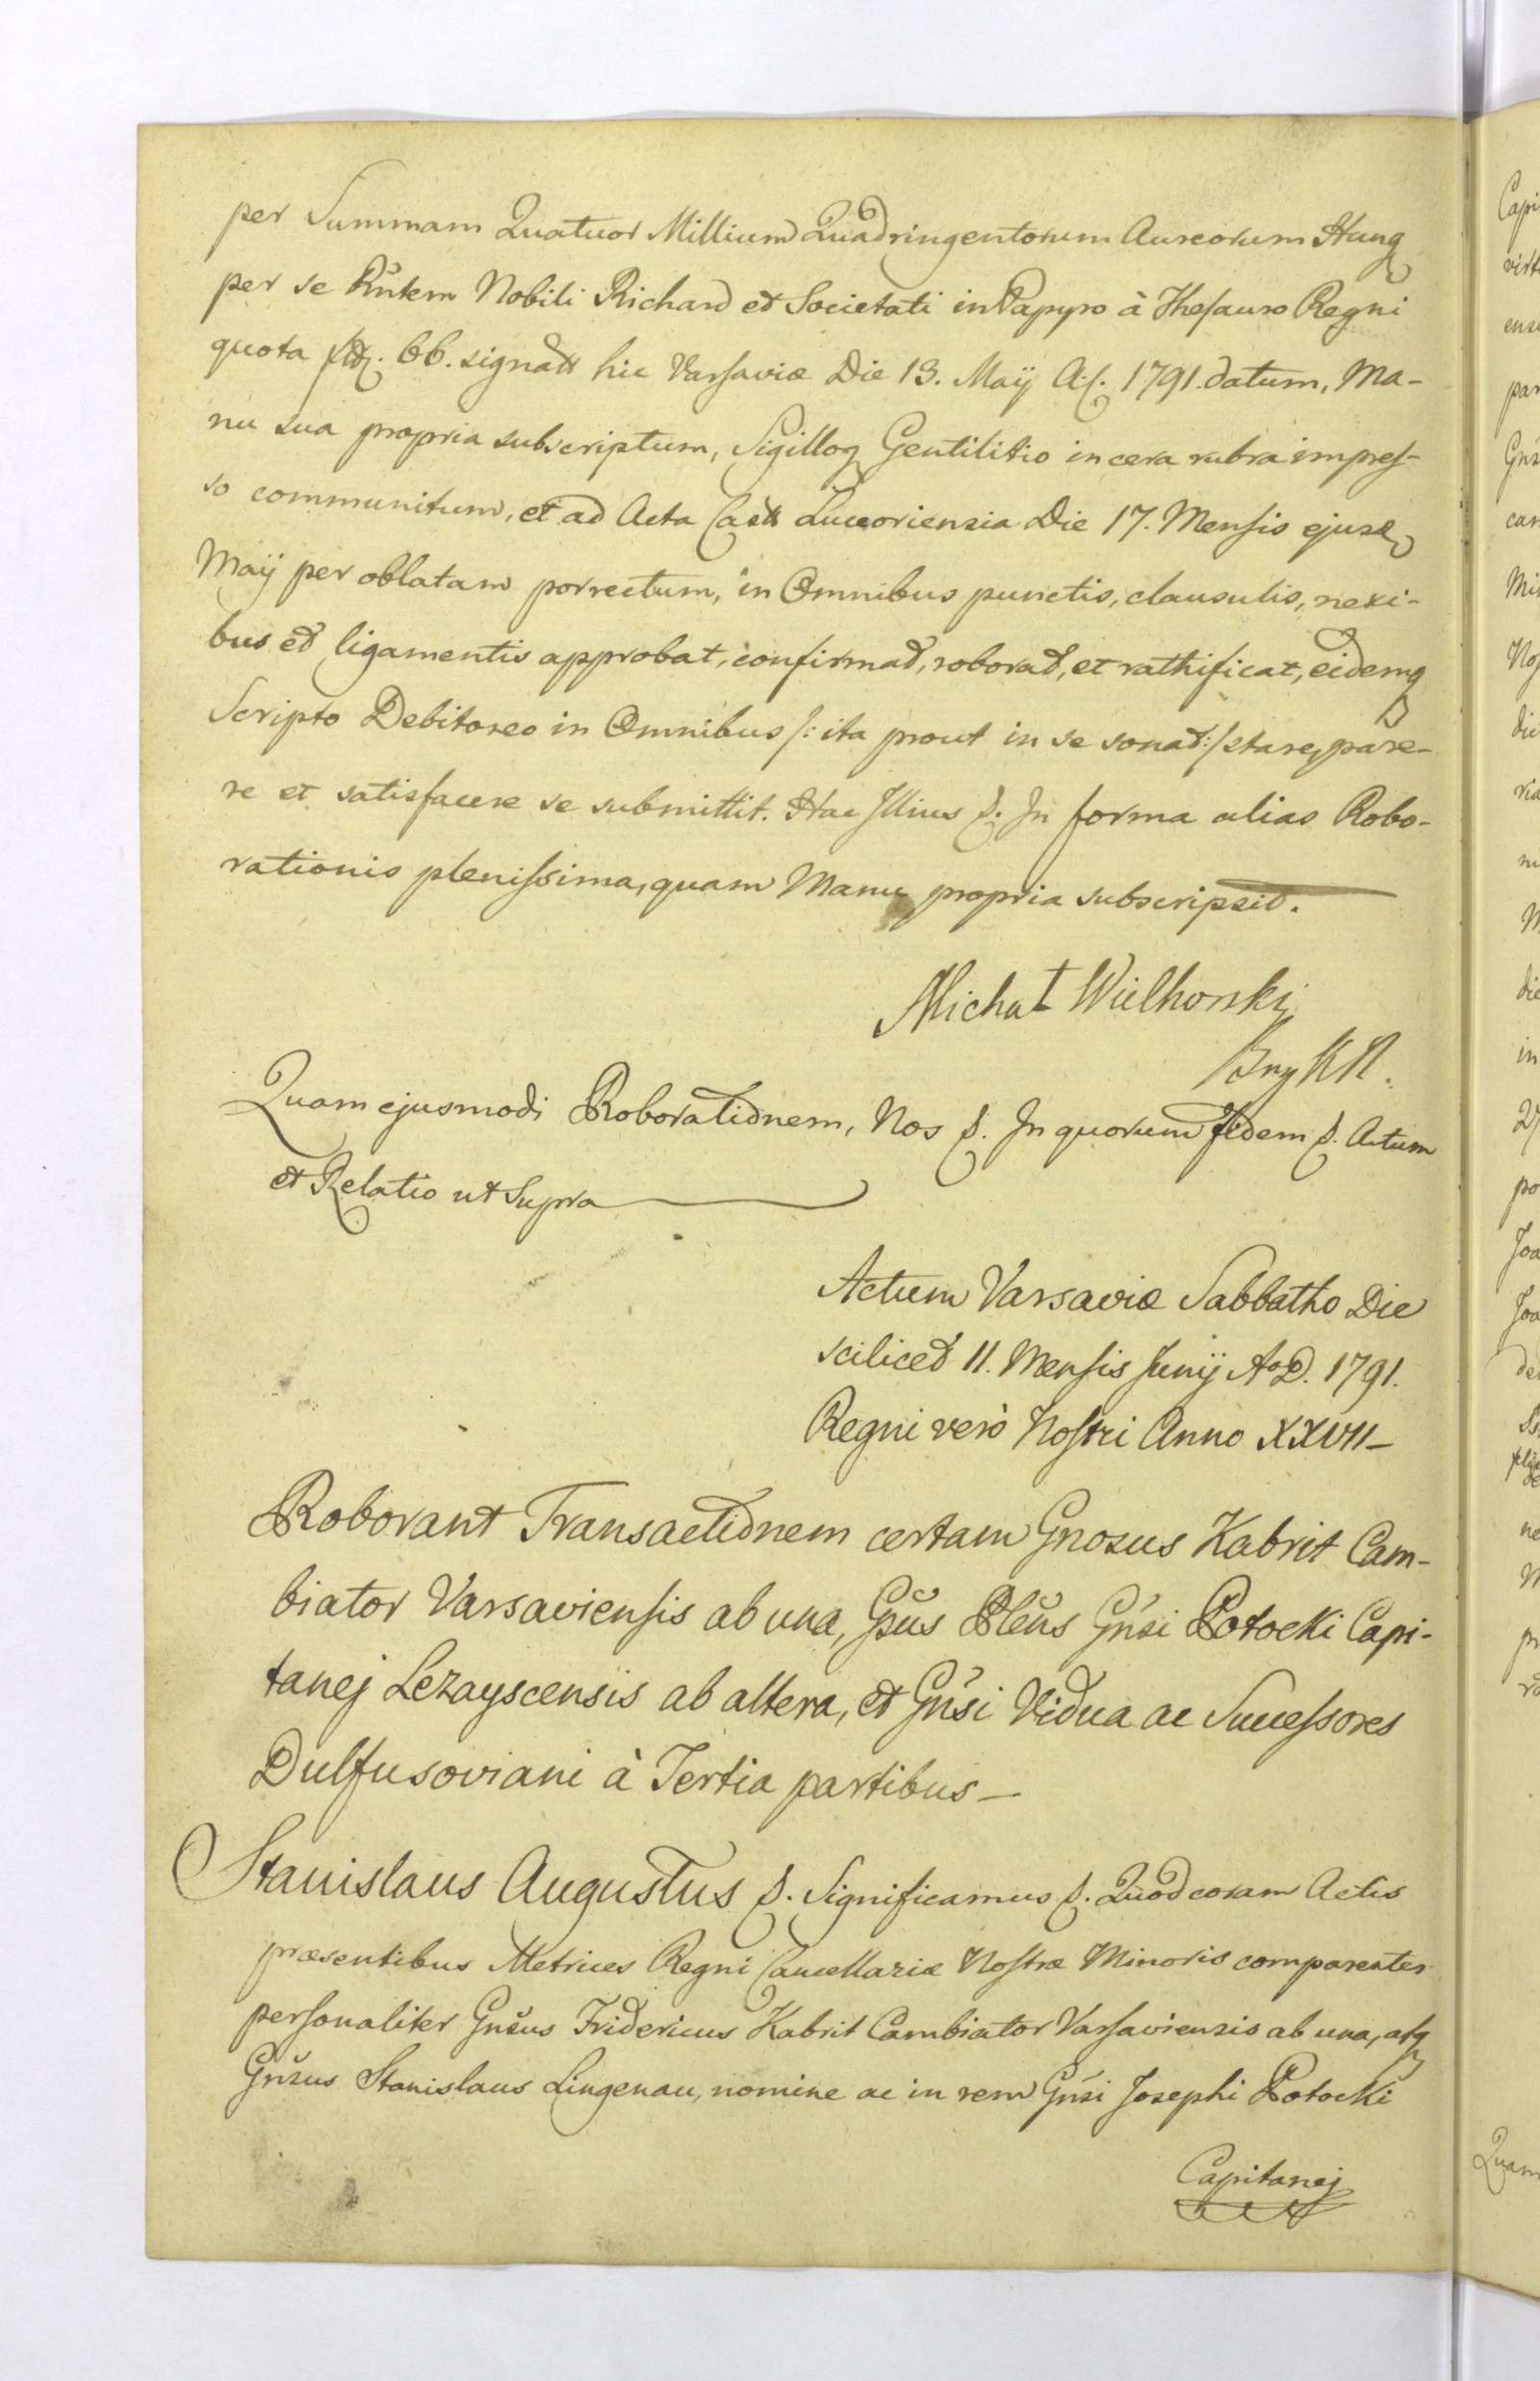 per Summam Quatuor Millium Quadringentorum Aureorum Hung
per se Rn̄tem Nobili Richard et Societati in Papyro à Thesauro Regni
quota 66. signatt hic Varsaviæ Die 13. Maij A. 1791. datum, Ma-
nu sua propria subscriptum, Sigilloq Gentilitio in cera rubra impres-
so communitum, et ad Acta Castt Luceoriensia Die 17. Mensis ejusd
Maij per oblatam porrectum, in Omnibus punctis, clausulis, nexi-
bus et ligamentis approbat, confirmat, roborat, et rathificat, eidemq
Scripto Debitoreo in Omnibus /: ita prout in se sonat :/ stare, pare-
re et satisfacere se submittit. Hac Illius p. In forma alias Robo-
rationis plenissima, quam Manu propria subscripsit.
Michał Wielhorski
Quam ejusmodi Roborationem, Nos p. In quorum fidem p. Actum
et Relatio ut Supra
Actum Varsaviæ Sabbatho Die
scilicet 11. Mensis Junij AoD. 1791.
Regni verò Nostri Anno XXVII_
Roborant Transactionem certam Gnosus Kabrit Cam-
biator Varsaviensis ab una, Gsus Plen̄s Gn̄si Potocki Capi-
tanej Lezayscensis ab altera, et Gn̄si Vidua ac Successores
Dulfusoviani à Tertia partibus_
Stanislaus Augustus p. Significamus p. Quod coram Actis
præsentibus Metrices Regni Cancellariæ Nostræ Minoris comparentes
personaliter Gn̄sus Fridericus Kabrit Cambiator Varsaviensis ab una, atq
Gn̄sus Stanislaus Lingenau, nomine ac in rem Gn̄si Josephi Potocki
Capitanej